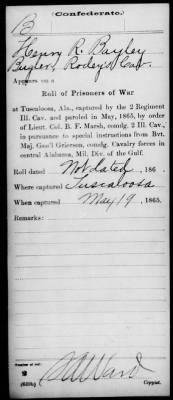 (Confederate.)
B
Henry R. Bayley
Bayley's, Rodey's Cav.
Appears on a
Roll of Prisoners of War
at Tuscaloosa, Ala., captured by the 2 Regiment
Ill. Cav. and paroled in May, 1865, by order
of Lieut. Col. B. F. Marsh, comdg. 2 Ill. Cav.,
in pursuance to special instructions from Bvt.
Maj. Gen'l Grierson, comdg. Cavalry forces in
central Alabama, Mil. Div. of the Gulf.
Roll dated Not dated, 186 .
Where captured Tuscaloosa
When captured May 19, 1865.
Remarks:
Number of roll:
2
Copyist.